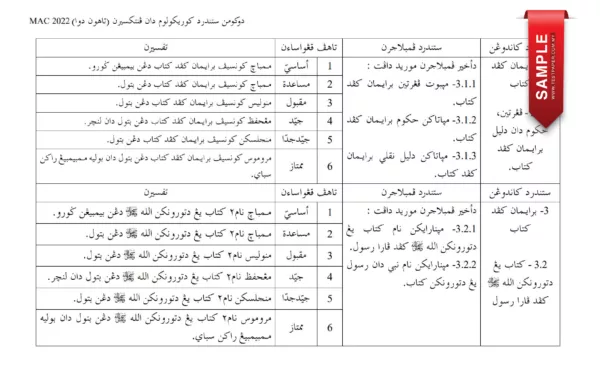 دوكومن ستندرد كوريكولوم دان ڤنتكسيرن (تاهون دوا) MAC 2022
SAMPLE
WWW.TESTPAPER.COM.MY
كاندوڠن
ستندرد ڤمبلاجرن
تاهڤ ڤڠواساءن
تفسيرن
برايمان كڤد
كتاب
ڤڠرتين،
حكوم دان دليل
برايمان كڤد
كتاب.
دأخير ڤمبلاجرن موريد داڤت :
3.1.1- مڽبوت ڤڠرتين برايمان كڤد
كتاب.
3.1.2- مڽاتاكن حكوم برايمان كڤد
كتاب.
3.1.3- مڽاتاكن دليل نقلي برايمان
كڤد كتاب.
1 أساسي ممباچ كونسيڤ برايمان كڤد كتاب دڠن بيمبيڠن ݢورو.
2 مساعدة ممباچ كونسيڤ برايمان كڤد كتاب دڠن بتول.
3 مقبول منوليس كونسيڤ برايمان كڤد كتاب دڠن بتول.
4 جيّد مڠحفظ كونسيڤ برايمان كڤد كتاب دڠن بتول دان لنچر.
5 جيّدجدّا منجلسكن كونسيڤ برايمان كڤد كتاب دڠن بتول.
6 ممتاز مروموس كونسيڤ برايمان كڤد كتاب دڠن بتول دان بوليه ممبيمبيڠ راكن
سباي.
ستندرد كاندوڠن
ستندرد ڤمبلاجرن
تاهڤ ڤڠواساءن
تفسيرن
3- برايمان كڤد
كتاب
3.2 - كتاب يڠ
دتورونكن الله ﷻ
كڤد ڤارا رسول
دأخير ڤمبلاجرن موريد داڤت :
3.2.1- مڽنارايكن نام كتاب يڠ
دتورونكن الله ﷻ كڤد ڤارا رسول.
3.2.2- مڽنارايكن نام نبي دان رسول
يڠ دتورونكن كتاب.
1 أساسي ممباچ نام٢ كتاب يڠ دتورونكن الله ﷻ دڠن بيمبيڠن ݢورو.
2 مساعدة ممباچ نام٢ كتاب يڠ دتورونكن الله ﷻ دڠن بتول.
3 مقبول منوليس نام٢ كتاب يڠ دتورونكن الله ﷻ دڠن بتول.
4 جيّد مڠحفظ نام٢ كتاب يڠ دتورونكن الله ﷻ دڠن بتول دان لنچر.
5 جيّدجدّا منجلسكن نام٢ كتاب يڠ دتورونكن الله ﷻ دڠن بتول.
6 ممتاز مروموس نام٢ كتاب يڠ دتورونكن الله ﷻ دڠن بتول دان بوليه
ممبيمبيڠ راكن سباي.